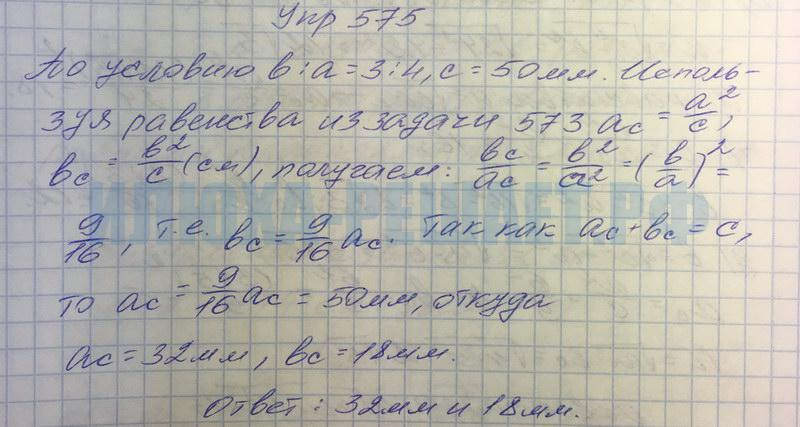 Упр 575
По условию в:а=3:4, с=50мм. Исполь-
зуя равенства из задачи 573 ac = a²/c,
вc = в²/c (см), получаем: вc/ac = в²/a² = (в/a)² =
9/16, т.е. вc = 9/16 ac. Так как ac + вc = c,
то ac = 9/16 ac = 50мм, откуда
ac = 32мм, вc = 18мм.
Ответ: 32мм и 18мм.